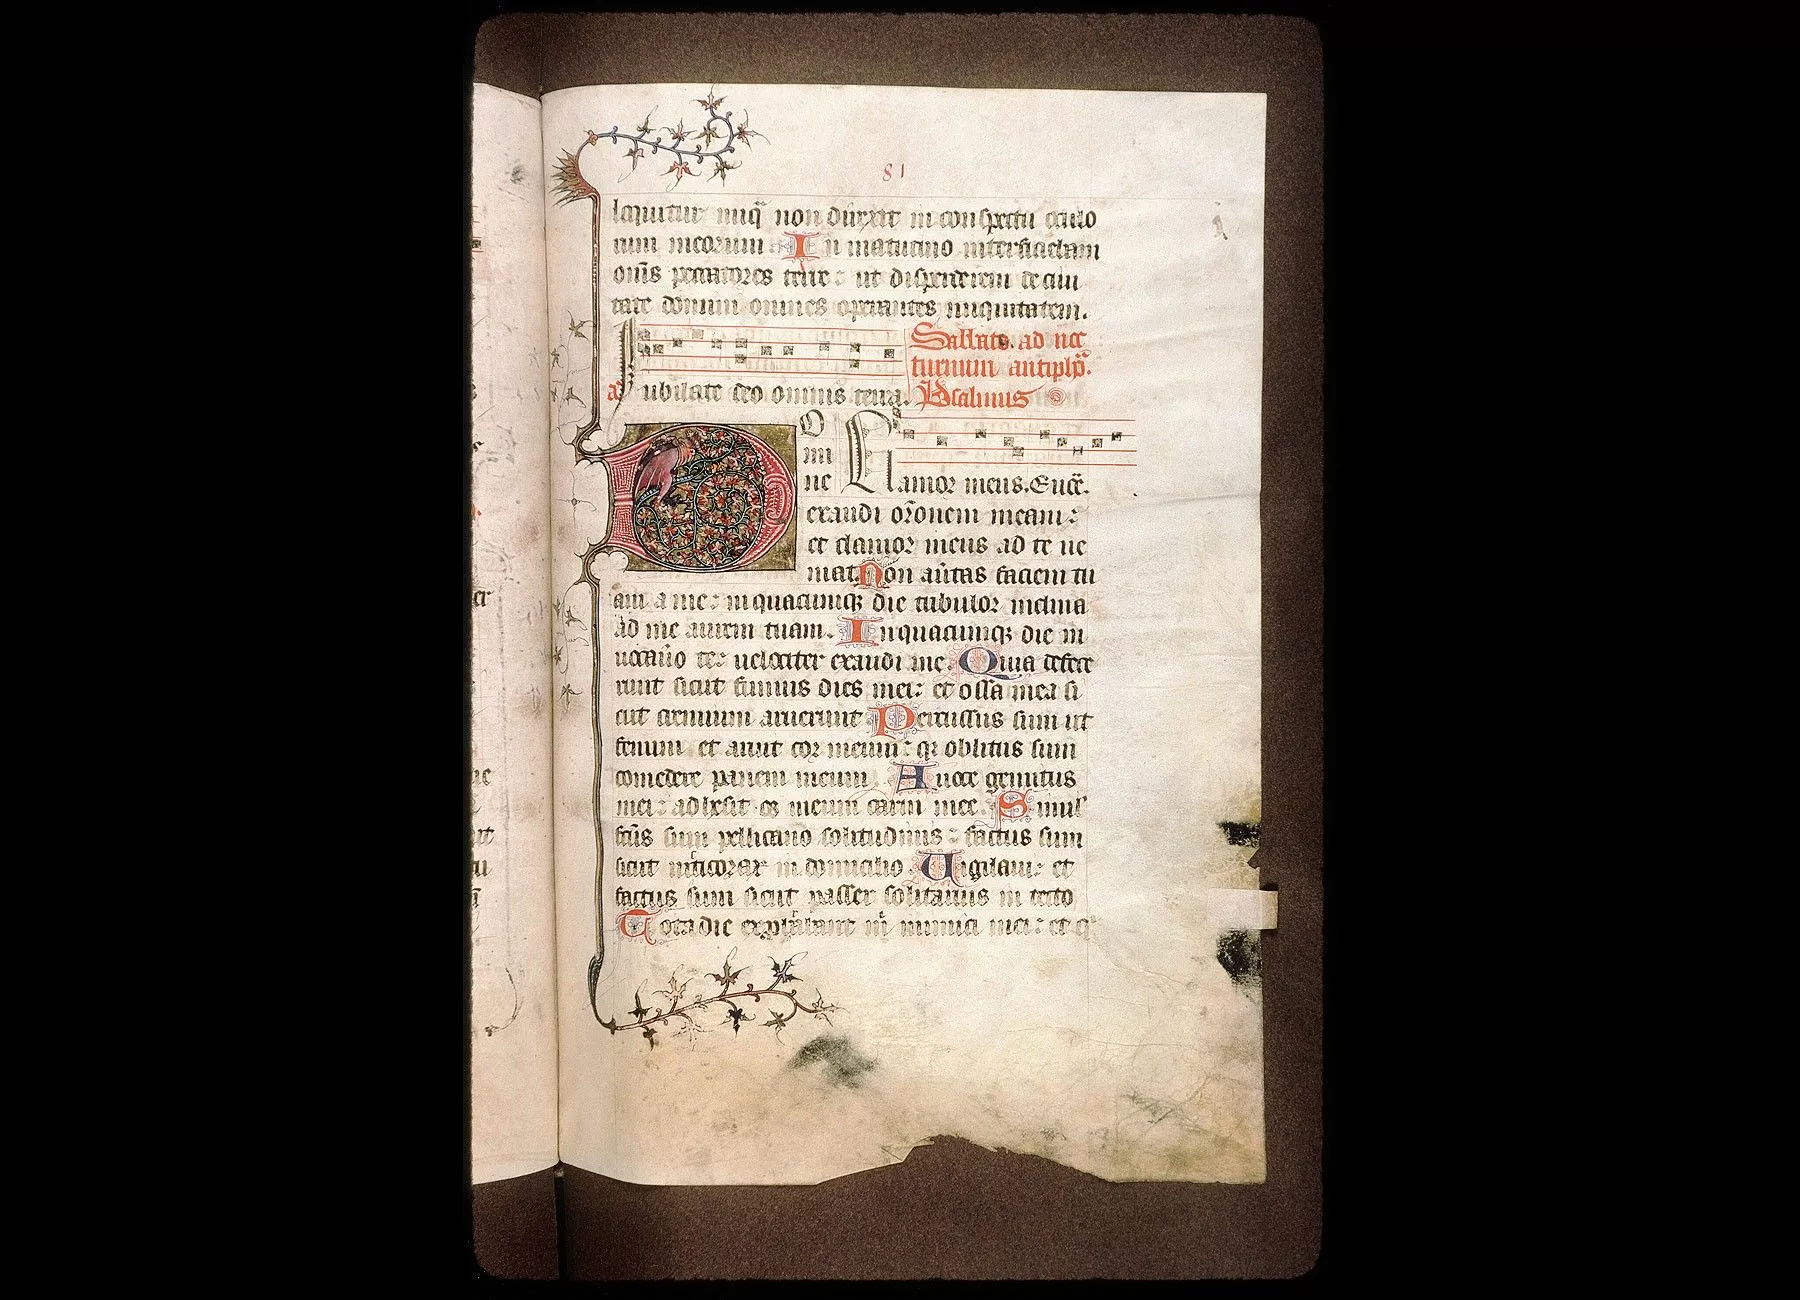 81
loquitur iniq̄ non direxit in conspectu oculo
rum meorum In matutino interficiebam
om̄s peccatores terre: ut disperderem de ciui
tate domini omnes operantes iniquitatem.
Sabbato ad noc
turnum antiph̄.
a Jubilate deo omnis terra. Psalmus
O
mi
ne Clamor meus. Euoē.
exaudi or̄onem meam:
et clamor meus ad te ue
niat. Non au̾tas faciem tu
am a me: in quacumqꝫ die tribulor inclina
ad me aurem tuam. In quacumqꝫ die in
uocau̾o te: uelociter exaudi me. Quia defece
runt sicut fumus dies mei: et ossa mea si
cut cremium aruerunt Percussus sum ut
fenum et aruit cor meum: qꝛ oblitus sum
comedere panem meum. A uoce gemitus
mei: adhesit os meum carni mee. Simil'
fc̄us sum pellicano solitudinis: factus sum
sicut nicticorax in domicilio. Uigilaui: et
factus sum sicut passer solitarius in tecto
Tota die exprobrabant m̄ inimici mei: et q